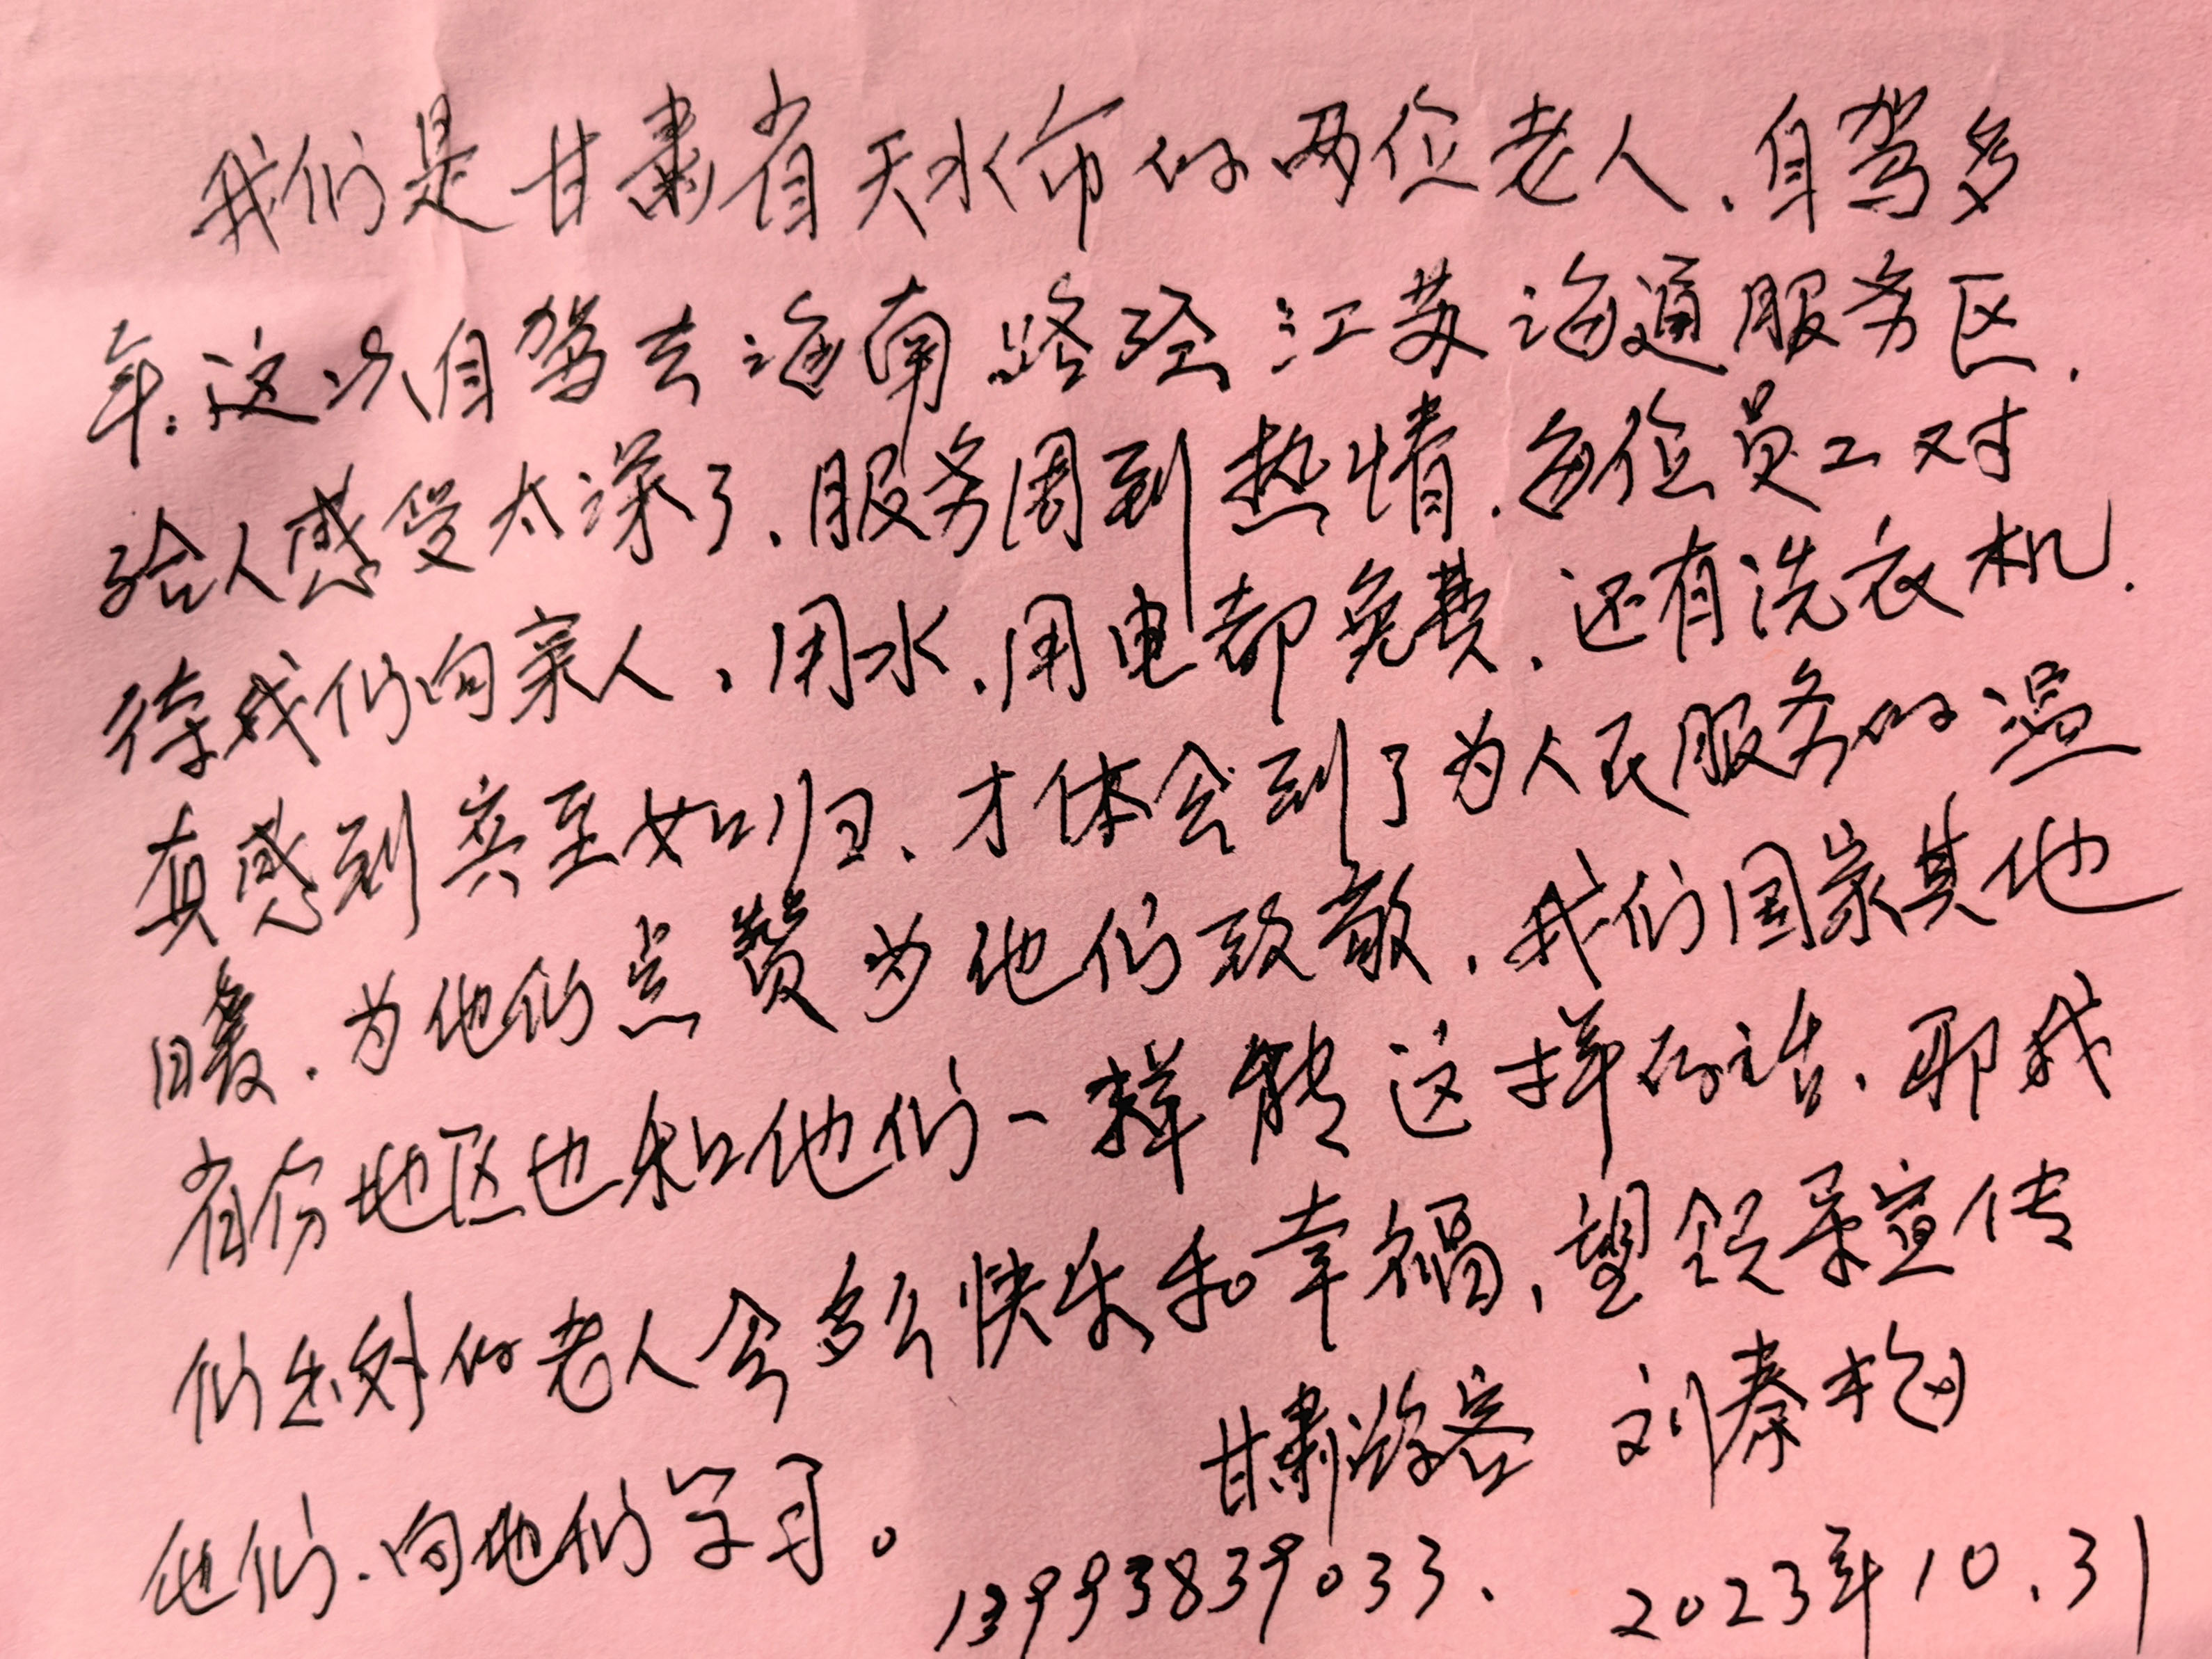 我们是甘肃省天水市的两位老人、自驾多
年.这次自驾去海南路经江苏沟通服务区.
给人感受太深了、服务周到热情.每位员工对
待我们向亲人、用水.用电都免费.还有洗衣机.
真感到宾至如归、才体会到了为人民服务的温
暖.为他们点赞为他们致敬.我们国家其他
省份地区也和他们一样能这样的话.那我
们出外的老人会多么快乐和幸福、望领导宣传
他们.向他们学习。
甘肃游客 刘秦
13993839033. 2023年10.31